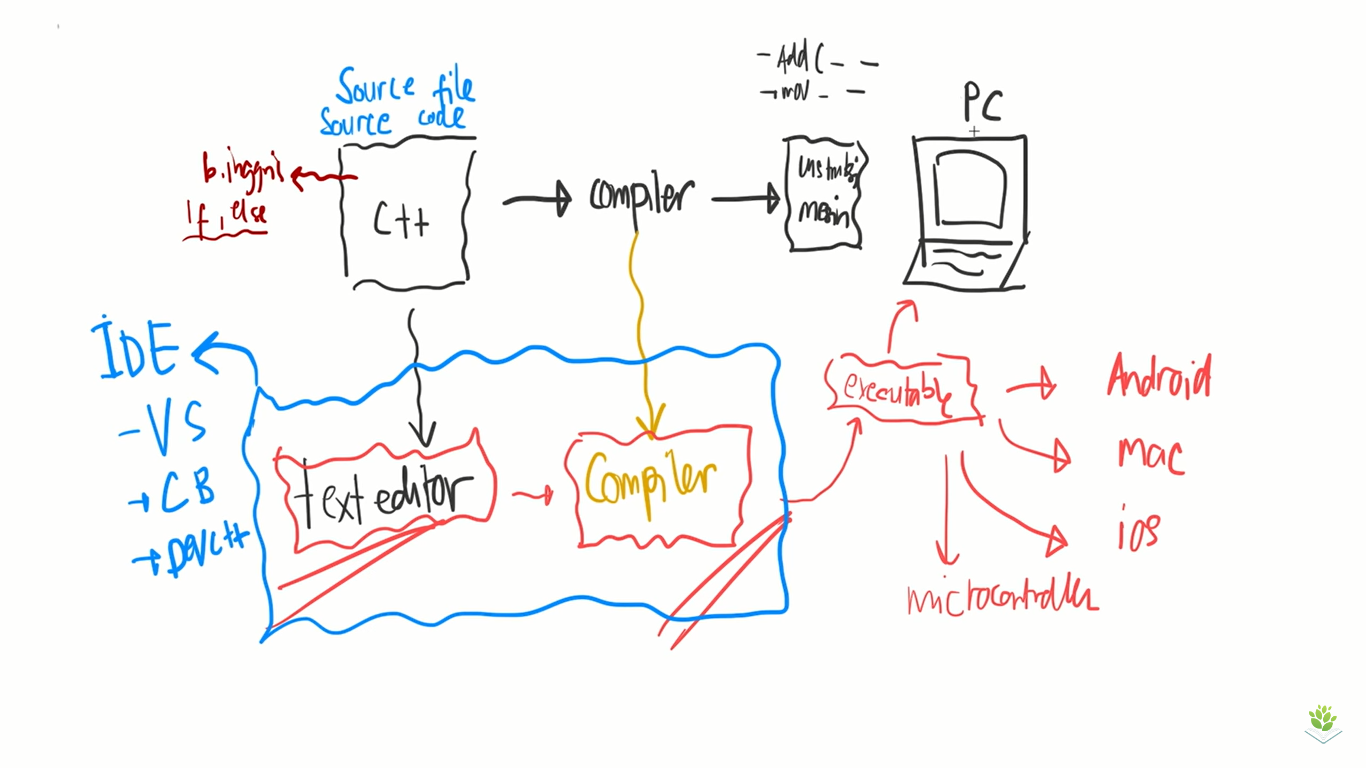 - Add ( - -
→ mov - -
PC
Source file
Source code
b. inggris
If, else
C++
compiler
instruksi
mesin
IDE
- VS
→ CB
→ Dev C++
text editor
Compiler
executable
Android
mac
ios
microcontroller